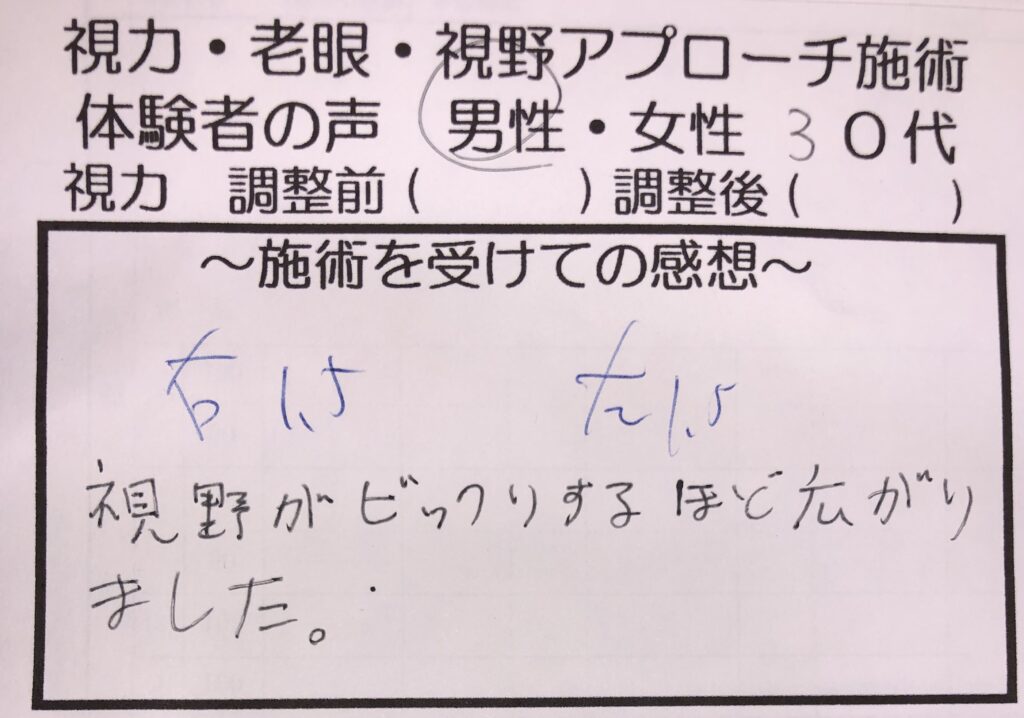 視力・老眼・視野アプローチ施術
体験者の声　男性・女性　30代
視力　調整前(　　　)調整後(　　　)
～施術を受けての感想～
右 1.5　左 1.5
視野がビックリするほど広がり
ました。